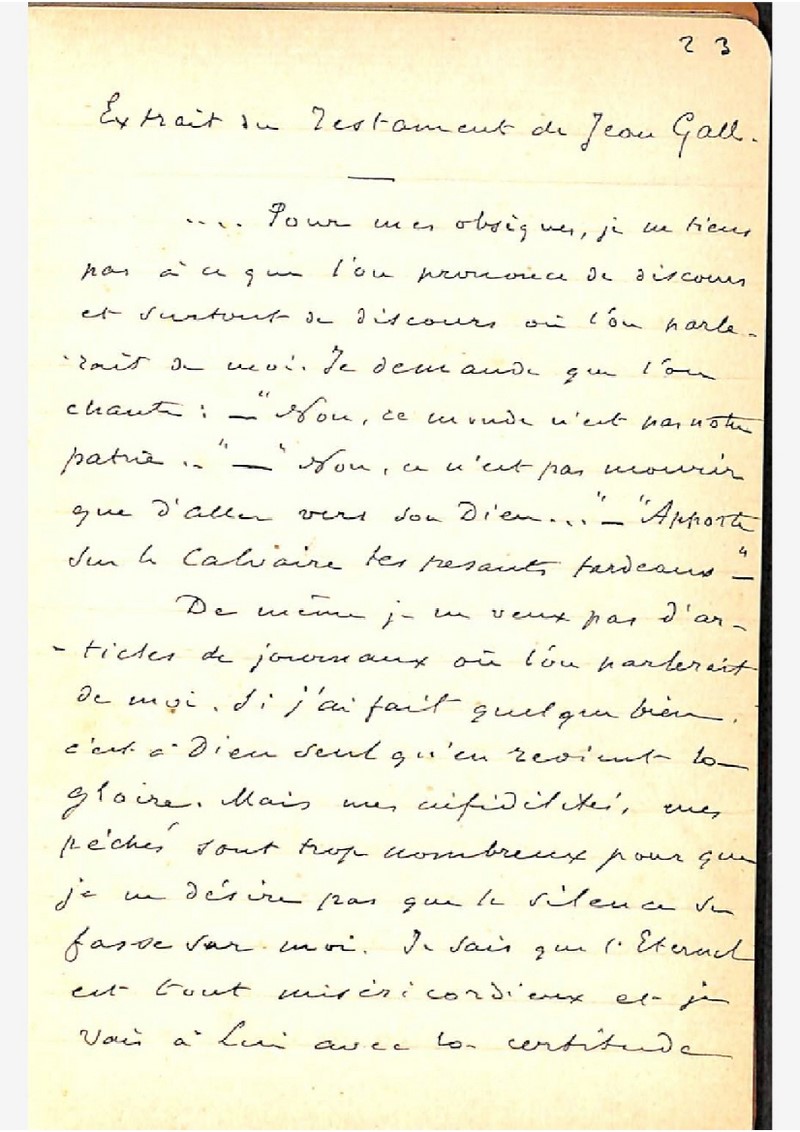 23
Extrait du Testament de Jean Gall.
.... Pour mes obsèques, je ne tiens
pas à ce que l'on prononce de discours
et surtout de discours où l'on parle-
-rait de moi. Je demande que l'on
chante : — "Non, ce monde n'est pas notre
patrie .." — "Non, ce n'est pas mourir
que d'aller vers son Dieu..." — "Apporte
sur le Calvaire tes pesants fardeaux" —
De même je ne veux pas d'ar-
-ticles de journaux où l'on parlerait
de moi. Si j'ai fait quelque bien,
c'est à Dieu seul qu'en revient la
gloire. Mais mes infidélités, mes
péchés sont trop nombreux pour que
je ne désire pas que le silence se
fasse sur moi. Je sais que l'Eternel
est tout miséricordieux et je
vais à Lui avec la certitude